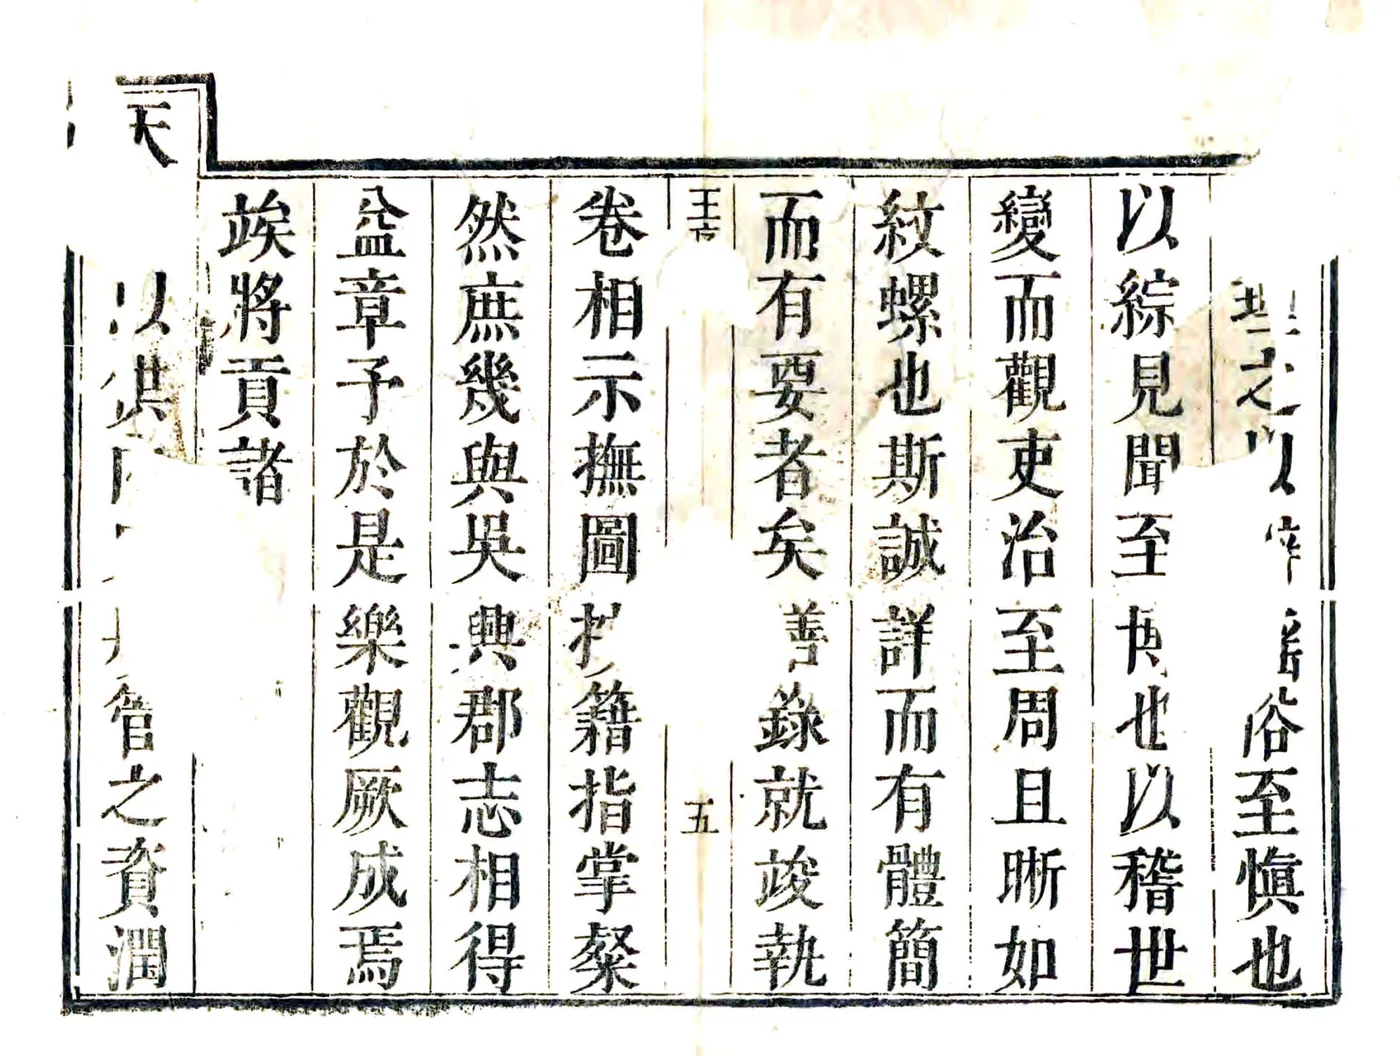 之以 俗至愼也
以綜見聞至博也以稽世
變而觀吏治至周且晰如
紋螺也斯誠詳而有體簡
而有要者矣 善錄就竣執
王 五
卷相示撫圖 籍指掌粲
然庶幾與吳興郡志相得
益章予於是樂觀厥成焉
竢將貢諸
天 以供 之資潤